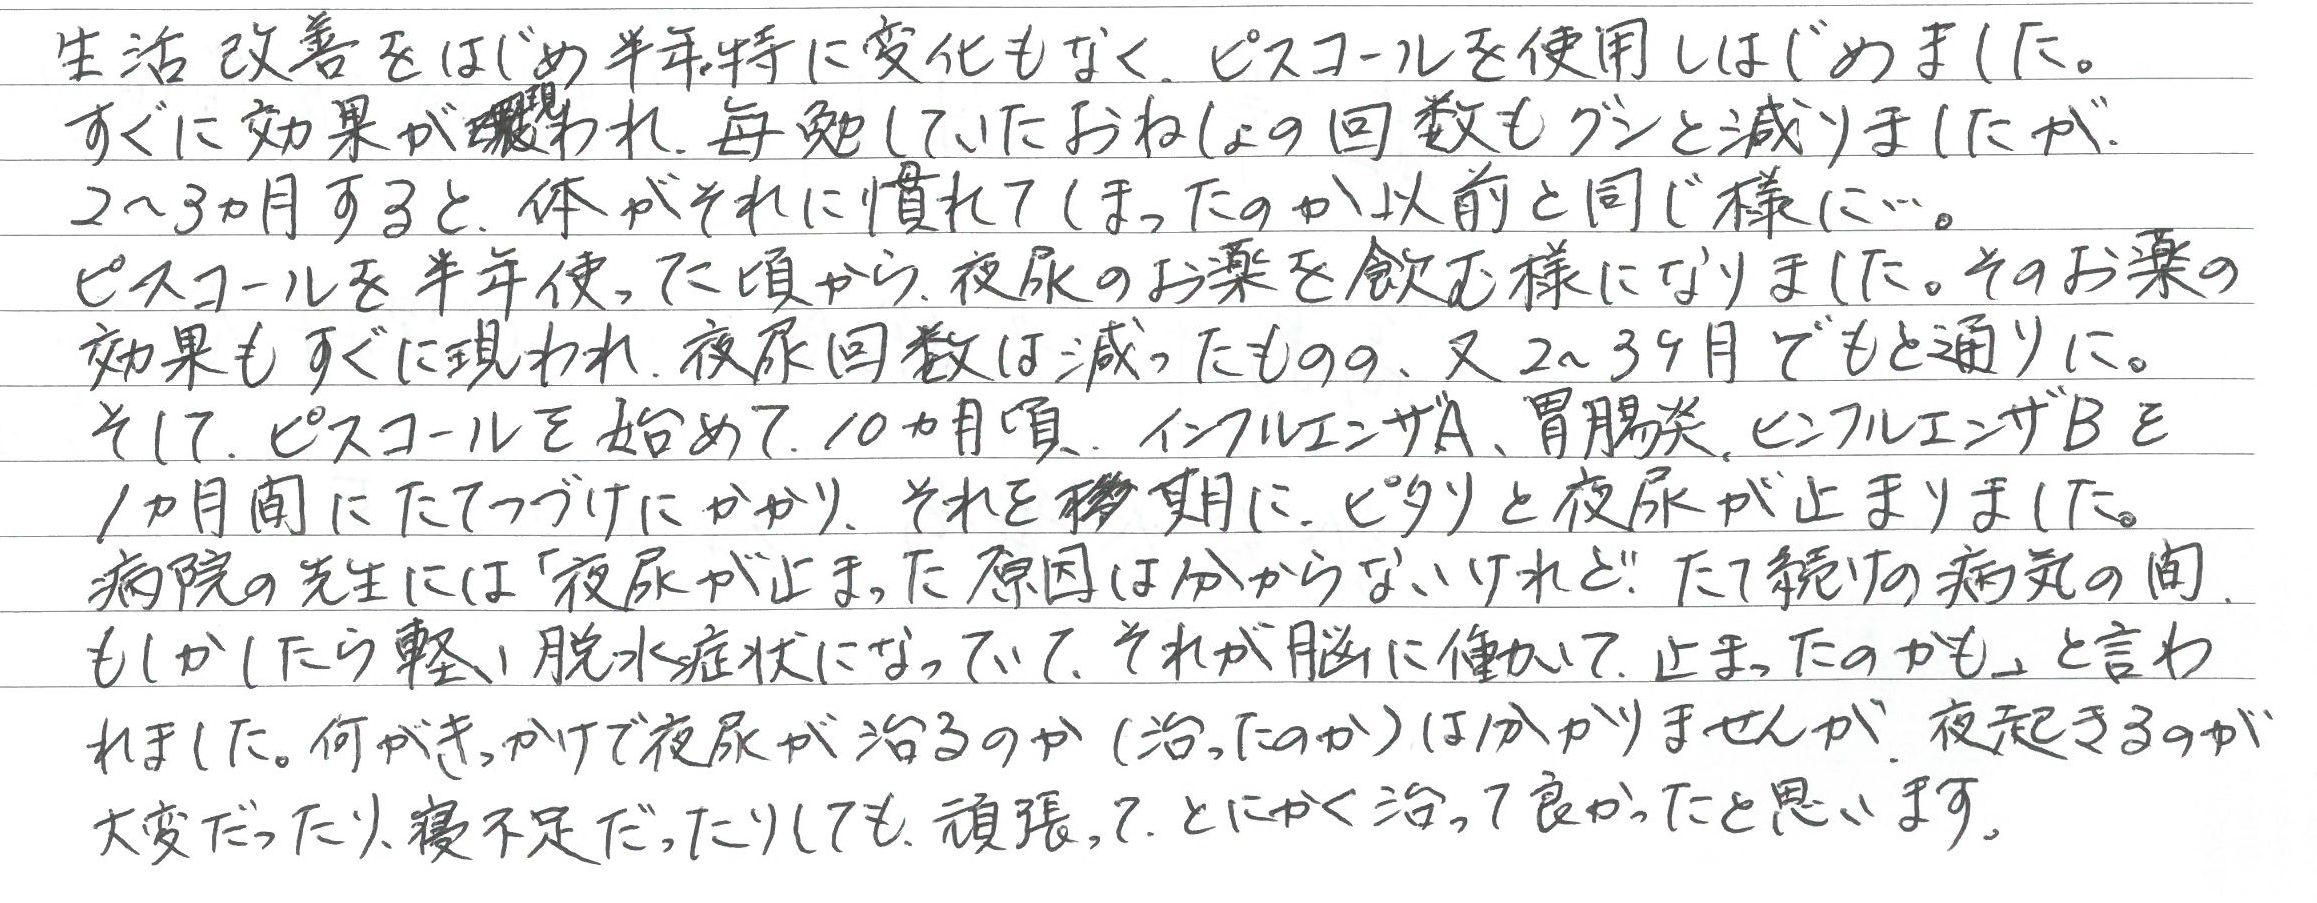 生活改善をはじめ半年、特に変化もなく、ピスコールを使用しはじめました。
すぐに効果が現われ、毎晩していたおねしょの回数もグンと減りましたが、
2〜3ヵ月すると、体がそれに慣れてしまったのか以前と同じ様に…。
ピスコールを半年使った頃から、夜尿のお薬を飲む様になりました。そのお薬の
効果もすぐに現われ、夜尿回数は減ったものの、又2〜3ヶ月でもと通りに。
そして、ピスコールを始めて、10ヵ月頃、インフルエンザA、胃腸炎、インフルエンザBを
1ヵ月間にたてつづけにかかり、それを期に、ピタリと夜尿が止まりました。
病院の先生には「夜尿が止まった原因は分からないけれど、たて続けの病気の間、
もしかしたら軽い脱水症状になっていて、それが脳に働いて、止まったのかも」と言わ
れました。何がきっかけで夜尿が治るのか(治ったのか)は分かりませんが、夜起きるのが
大変だったり、寝不足だったりしても、頑張って、とにかく治って良かったと思います。